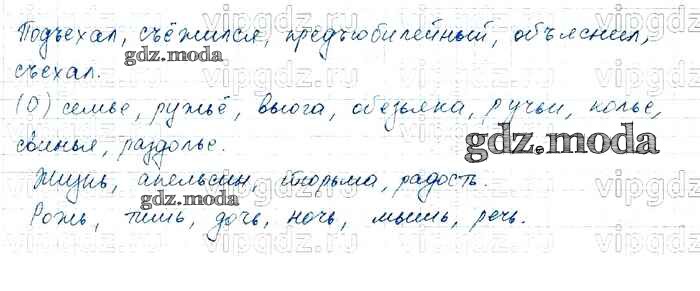 Подъехал, съёжился, предъюбилейный, объяснил,
съехал.
(О) семье, ружьё, вьюга, обезьянка, ручьи, колье,
свинья, раздолье.
Жизнь, апельсин, тюрьма, радость.
Рожь, тишь, дочь, ночь, мышь, речь.
gdz.moda
gdz.moda
gdz.moda
vipgdz.ru